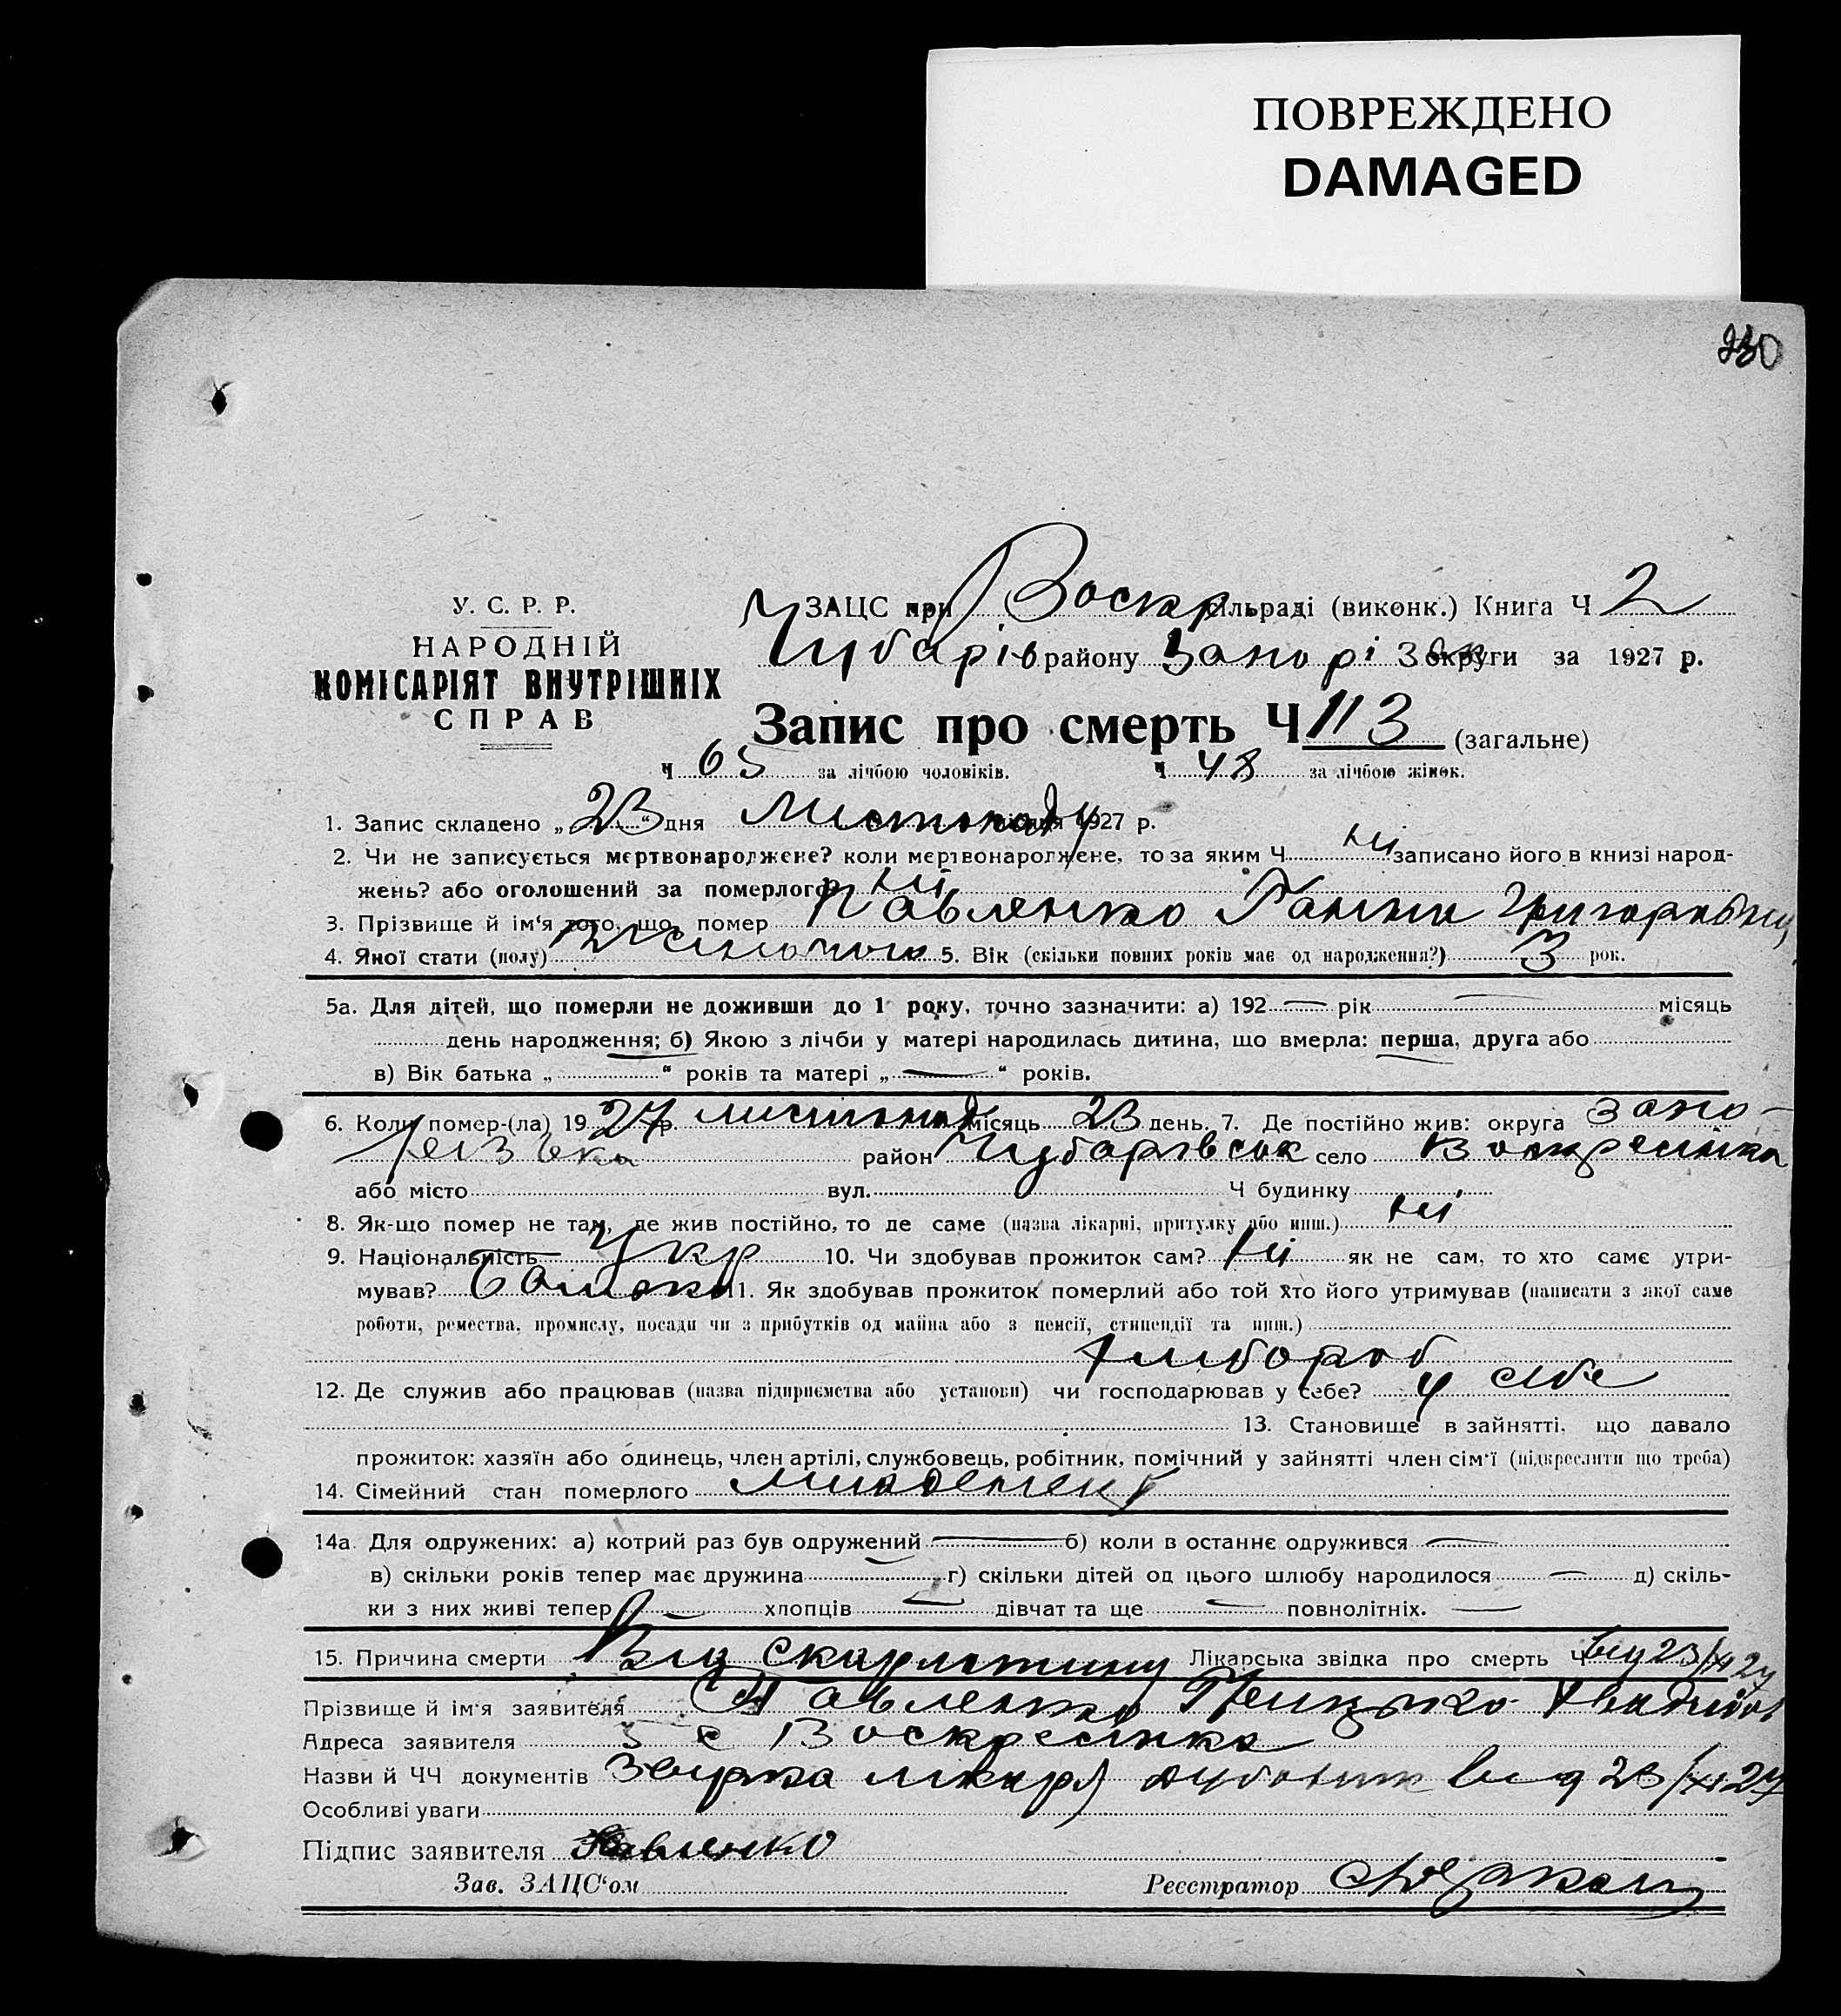 ПОВРЕЖДЕНО
DAMAGED
230
У. С. Р. Р.
НАРОДНІЙ
КОМІСАРІЯТ ВНУТРІШНІХ
СПРАВ
ЗАЦС при Воскр сільраді (виконк.) Книга Ч 2
Чубарів району Запоріз округи за 1927 р.
Запис про смерть Ч 113 (загальне)
Ч 65 за лічбою чоловіків. Ч 48 за лічбою жінок.
1. Запис складено „23“ дня листопаду місяця 1927 р.
2. Чи не записується мертвонароджене? коли мертвонароджене, то за яким Ч ні записано його в книзі народ-
жень? або оголошений за померлого? ні
3. Прізвище й ім‘я того, що помер Павленко Ганна
4. Якої стати (полу) 5. Вік (скільки повних років має од народження?) 3 рок.
5а. Для дітей, що померли не доживши до 1 року, точно зазначити: а) 192 — рік — місяць
день народження; б) Якою з лічби у матері народилась дитина, що вмерла: перша, друга або
в) Вік батька „ “ років та матері „ — “ років.
6. Коли помер-(ла) 1927 р. листопад місяць 23 день. 7. Де постійно жив: округа Запо-
різька район Чубарівськ село Воскресінка
або місто вул. Ч будинку
8. Як-що помер не там, де жив постійно, то де саме (назва лікарні, притулку або инш.) ні
9. Національність Укр 10. Чи здобував прожиток сам? ні як не сам, то хто саме утри-
мував? батько 11. Як здобував прожиток померлий або той хто його утримував (написати з якої саме
роботи, ремества, промислу, посади чи з прибутків од майна або з пенсії, стипендії та инш.)
хлібороб
12. Де служив або працював (назва підприємства або установи) чи господарював у себе? у себе
13. Становище в зайнятті, що давало
прожиток: хазяїн або одинець, член артілі, службовець, робітник, помічний у зайнятті член сім‘ї (підкреслити що треба)
14. Сімейний стан померлого
14а. Для одружених: а) котрий раз був одружений — б) коли в останнє одружився —
в) скільки років тепер має дружина — г) скільки дітей од цього шлюбу народилося — д) скіль-
ки з них живі тепер — хлопців — дівчат та ще — повнолітніх. —
15. Причина смерти Від скарлатини Лікарська звідка про смерть Ч від 23/XI 27
Прізвище й ім‘я заявителя Павленко Грицько
Адреса заявителя с Воскресінка
Назви й ЧЧ документів лікаря від 23/XI 27
Особливі уваги
Підпис заявителя Павленко
Зав. ЗАЦС‘ом Реєстратор